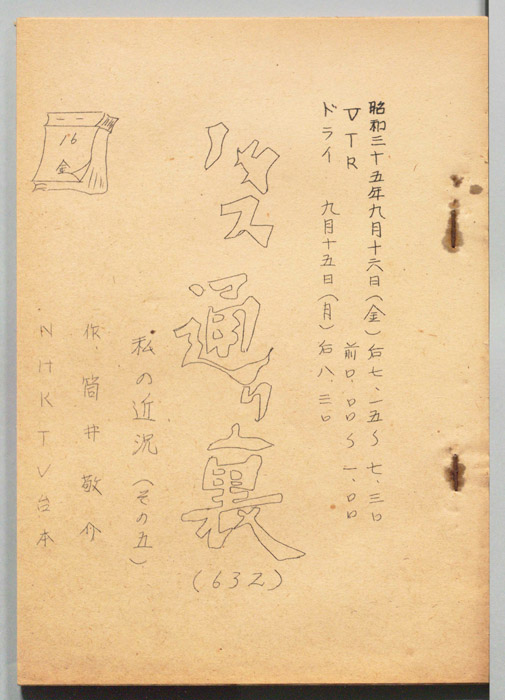 昭和三十五年九月十六日(金)后七.一五〜七.三〇
VTR 前〇.〇〇〜一.〇〇
ドライ 九月十五日(月)后八.三〇
バス通り裏
(632)
私の近況(その五)
作 筒井敬介
NHKTV台本
16
金